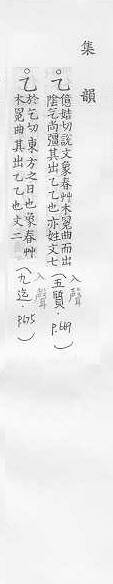 集韻
○乙 億姞切說文象春艸木冤曲而出
陰气尚彊其出乙乙也亦姓文七
入聲
(五質．P.669)
○乙 於乞切東方之日也象春艸
木冤曲其出乙乙也文二
入聲
(九迄．P.675)